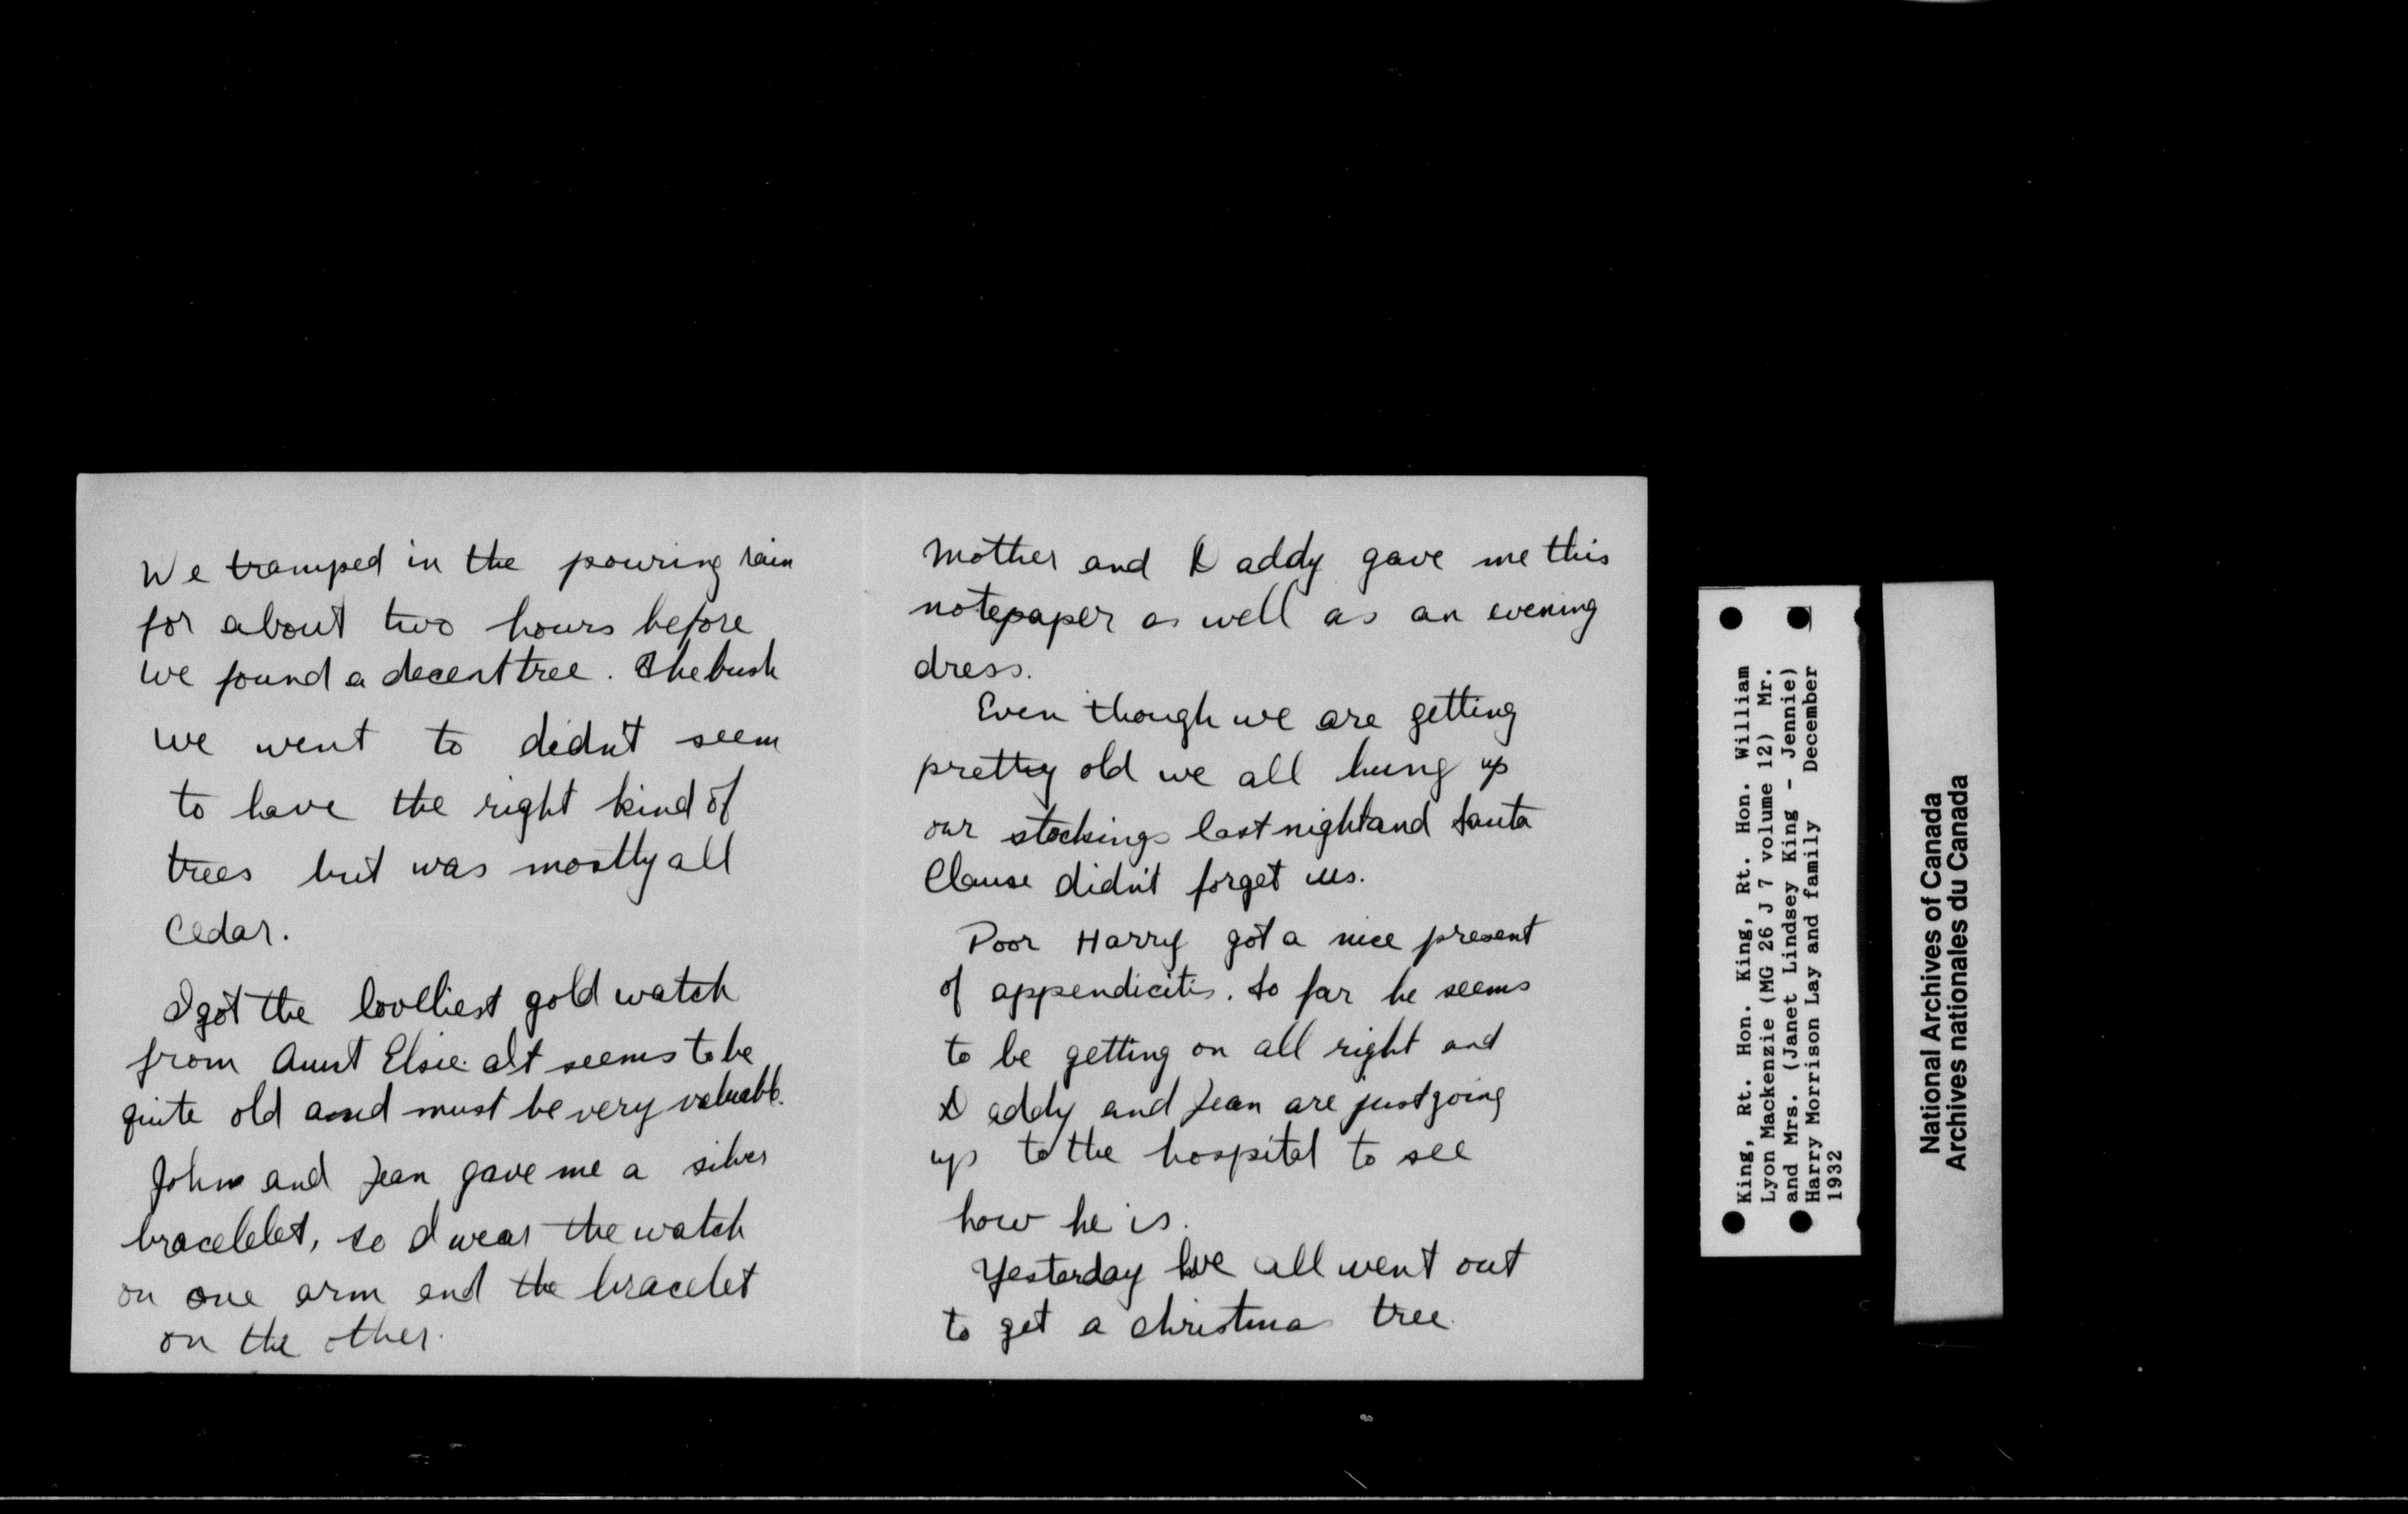 We tramped in the pouring rain
for about two hours before
we found a decent tree. The bush
we went to didn't seem
to have the right kind of
trees but was mostly all
cedar.
I got the lovlliest gold watch
from Aunt Elsie. It seems to be
quite old and must be very valuable.
John and Jean gave me a silver
bracelelet, so I wear the watch
on one arm and the bracelet
on the other.
Mother and Daddy gave me this
notepaper as well as an evening
dress.
Even though we are getting
pretty old we all hung up
our stockings last night and Santa
Clause didn't forget us.
Poor Harry got a nice present
of appendicitis. So far he seems
to be getting on all right and
Daddy and Jean are just going
up to the hospital to see
how he is.
Yesterday we all went out
to get a christmas tree.
King, Rt. Hon. King, Rt. Hon. William
Lyon Mackenzie (MG 26 J 7 volume 12) Mr.
and Mrs. (Janet Lindsey King - Jennie)
Harry Morrison Lay and family December
1932
National Archives of Canada
Archives nationales du Canada